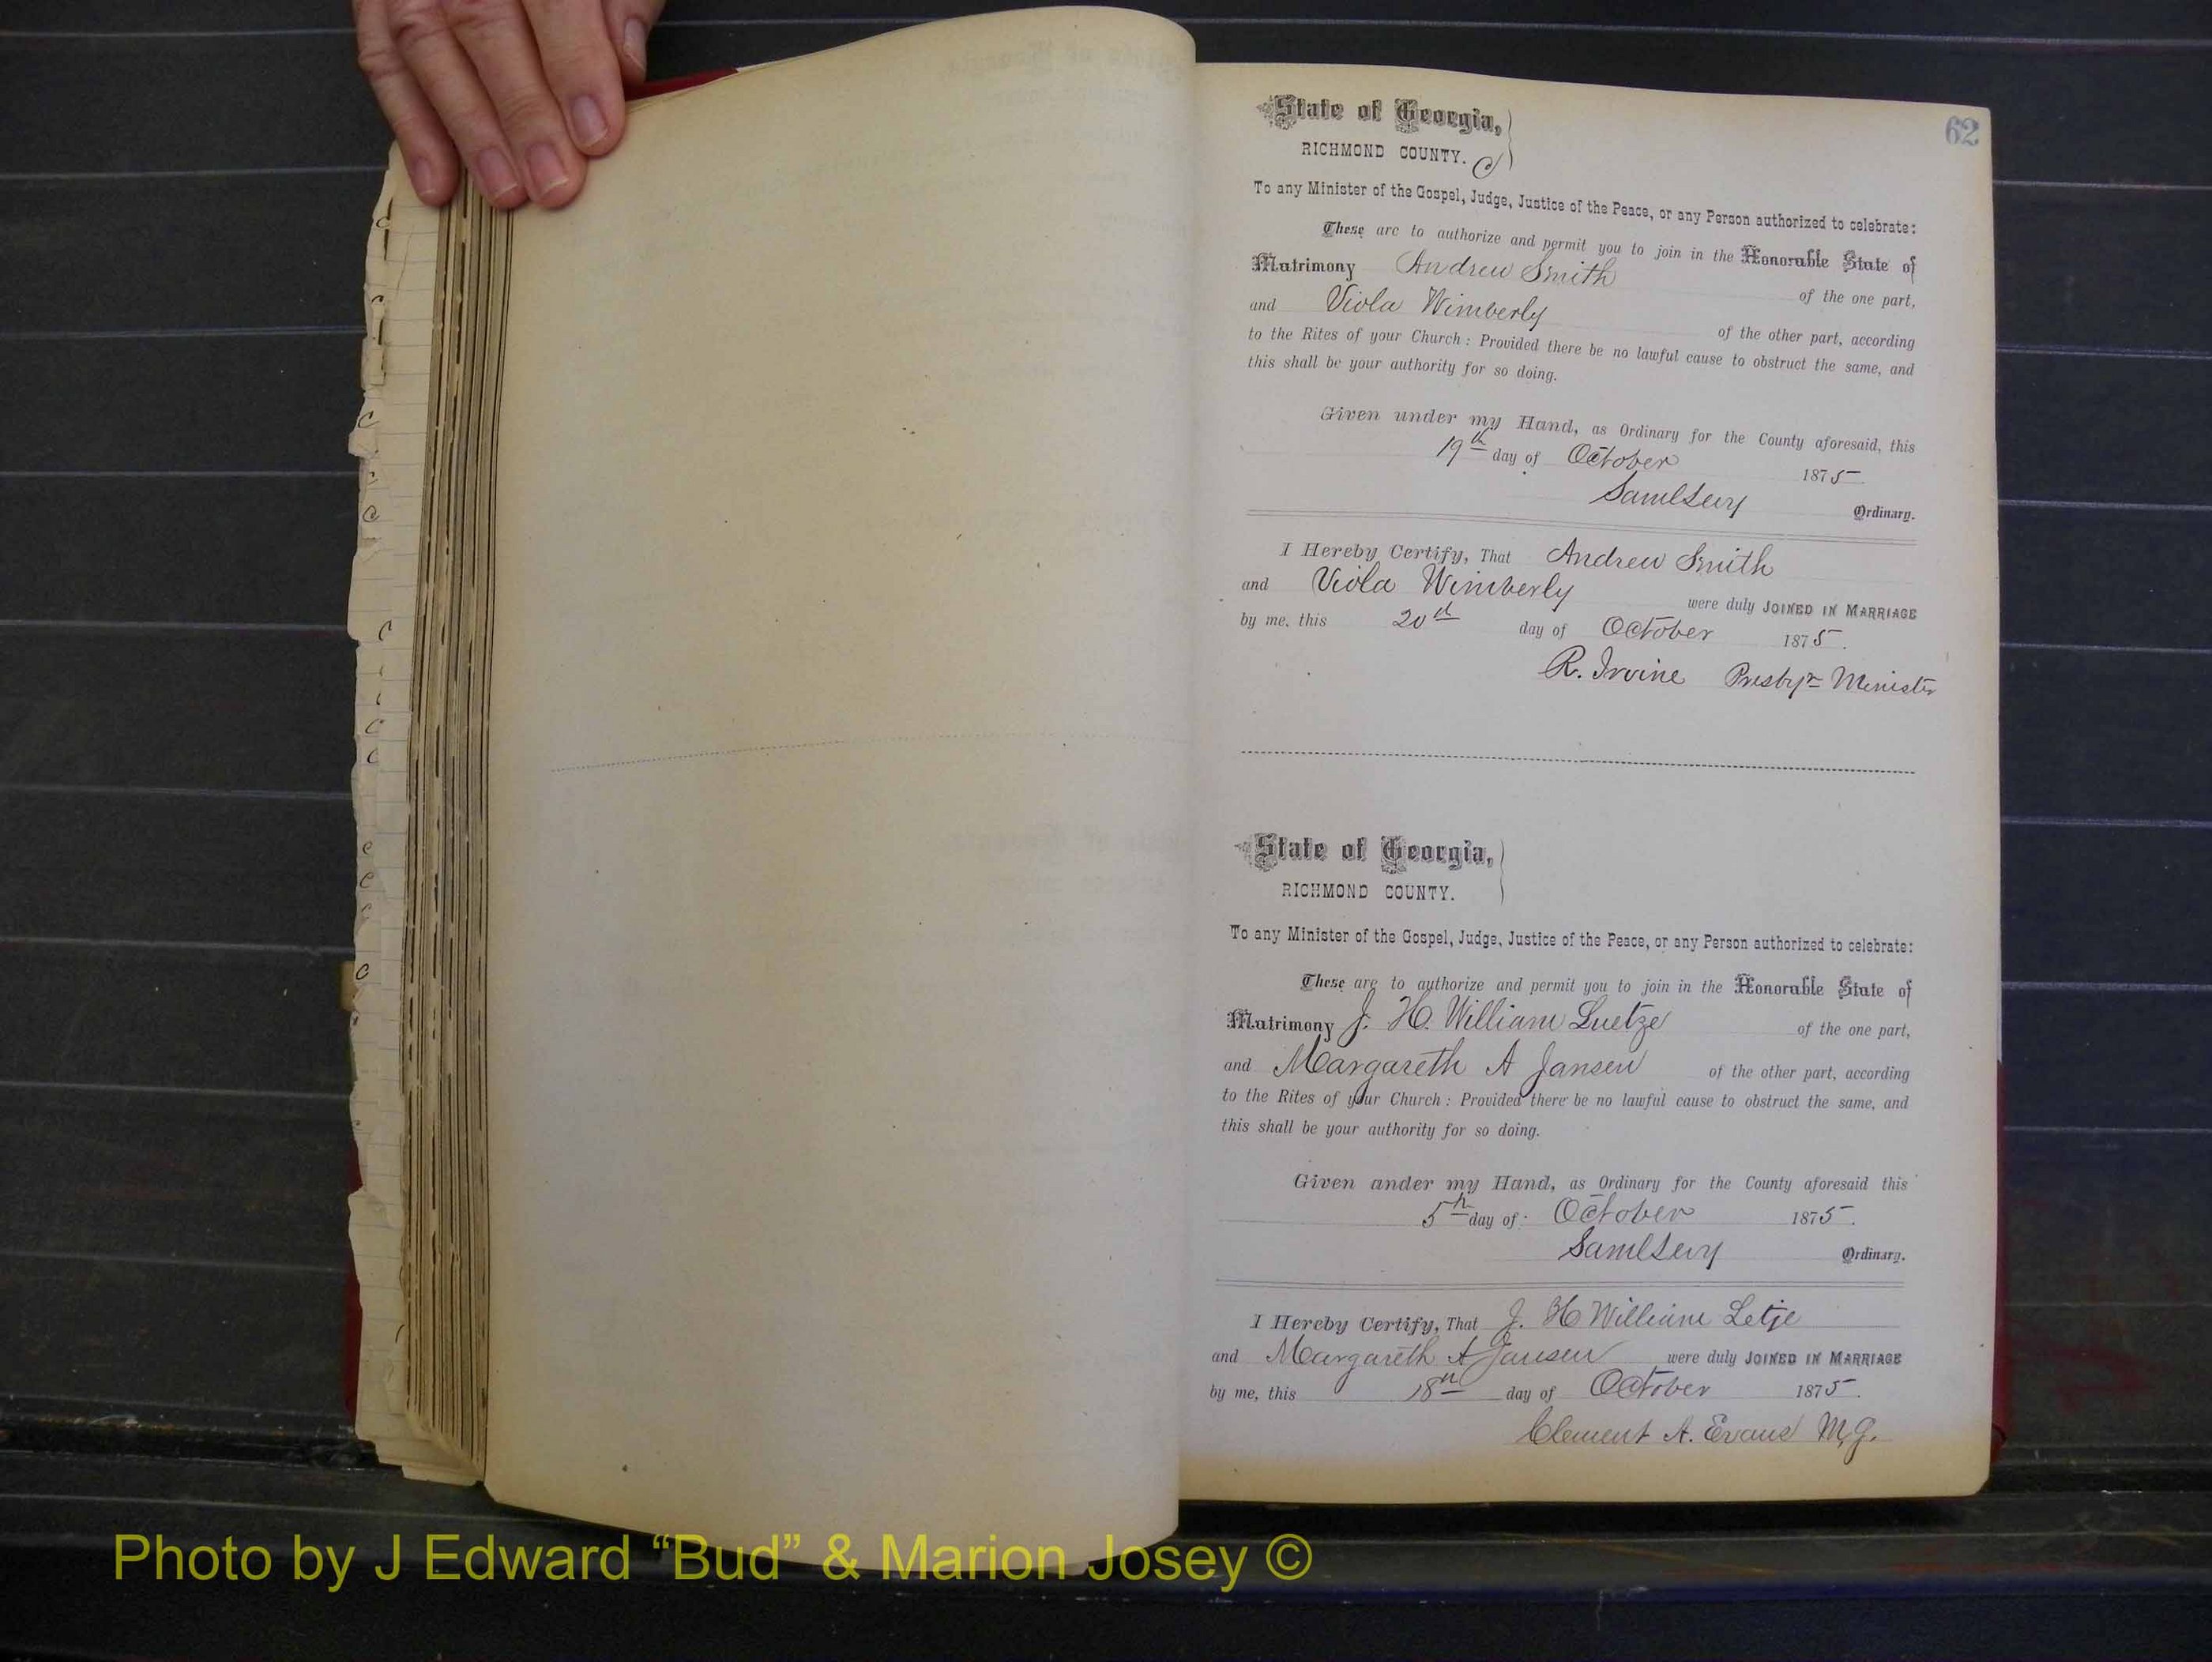 62
State of Georgia,
RICHMOND COUNTY. C
To any Minister of the Gospel, Judge, Justice of the Peace, or any Person authorized to celebrate:
These are to authorize and permit you to join in the Honorable State of
Matrimony Andrew Smith of the one part,
and Viola Wimberly of the other part, according
to the Rites of your Church: Provided there be no lawful cause to obstruct the same, and
this shall be your authority for so doing.
Given under my Hand, as Ordinary for the County aforesaid, this
19th day of October 1875
Saml Levy Ordinary.
I Hereby Certify, That Andrew Smith
and Viola Wimberly were duly JOINED IN MARRIAGE
by me, this 20th day of October 1875.
R. Irvine Presbyr Minister
State of Georgia,
RICHMOND COUNTY.
To any Minister of the Gospel, Judge, Justice of the Peace, or any Person authorized to celebrate:
These are to authorize and permit you to join in the Honorable State of
Matrimony J. H. William Luetze of the one part,
and Margareth A Jansen of the other part, according
to the Rites of your Church: Provided there be no lawful cause to obstruct the same, and
this shall be your authority for so doing.
Given under my Hand, as Ordinary for the County aforesaid this
5th day of October 1875.
Saml Levy Ordinary.
I Hereby Certify, That J. H William Letje
and Margareth A Jansen were duly JOINED IN MARRIAGE
by me, this 18th day of October 1875.
Clement A. Evans M.G.
Photo by J Edward “Bud” & Marion Josey ©